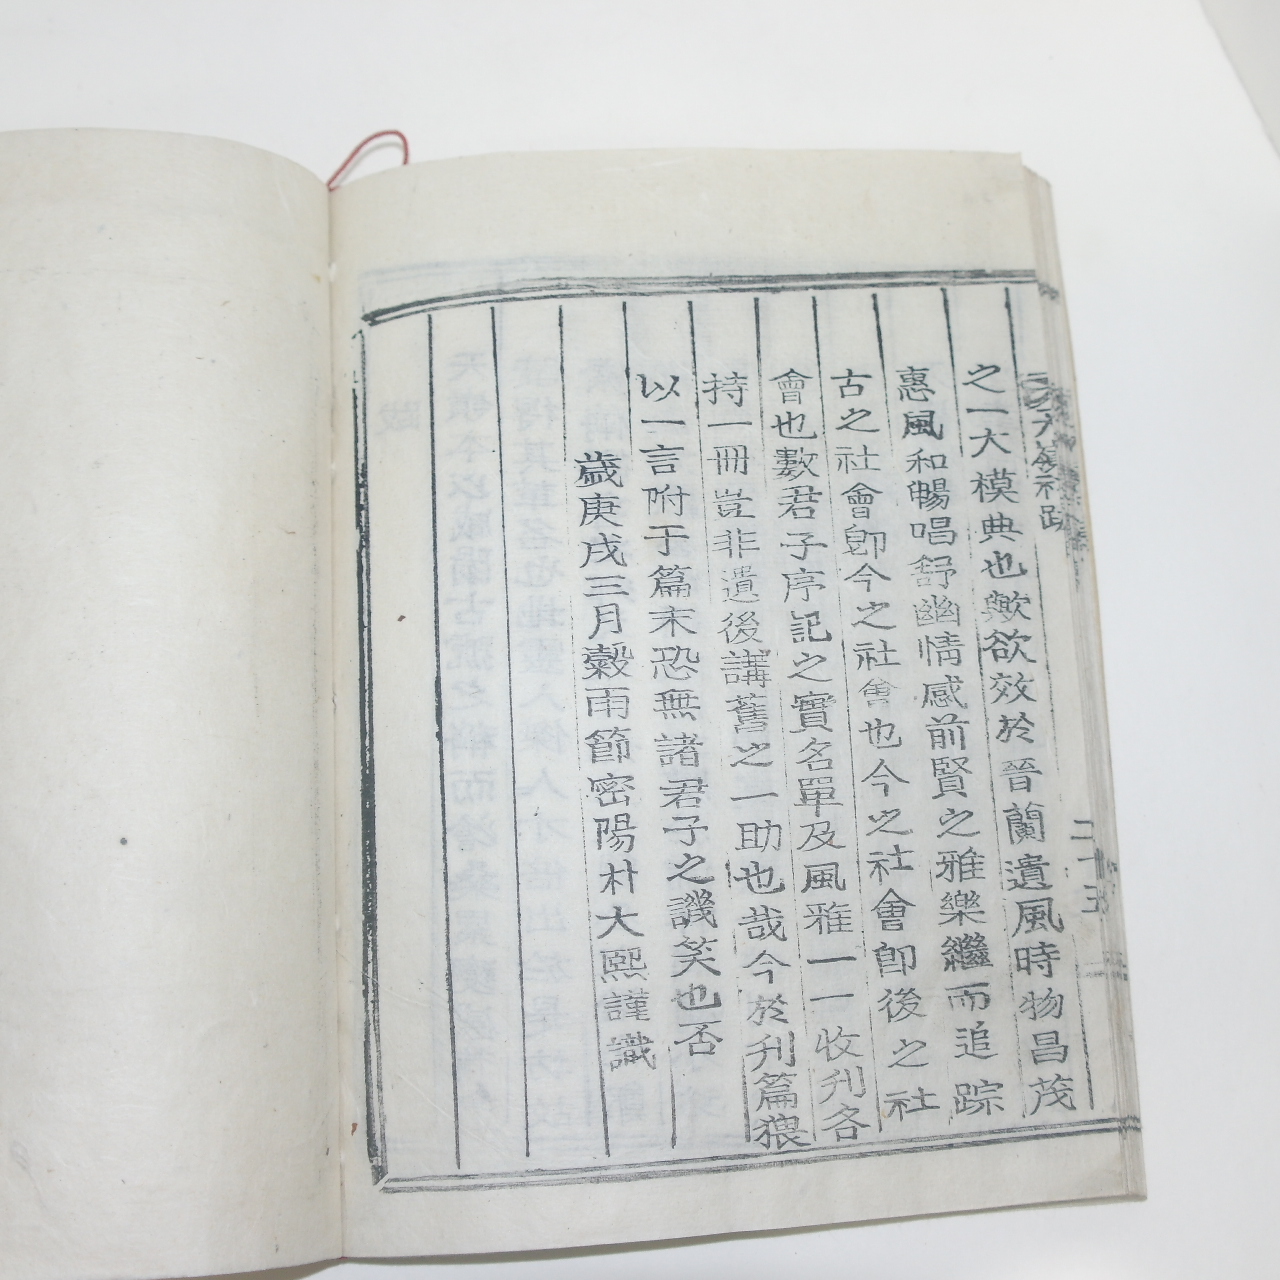 之一大模典也歟欲效於晉蘭遺風時物昌茂
惠風和暢唱舒幽情感前賢之雅樂繼而追踪
古之社會卽今之社會也今之社會卽後之社
會也數君子序記之實名單及風雅一一收刋各
持一冊豈非遺後講舊之一助也哉今於刋篇猥
以一言附于篇末恐無諸君子之譏笑也否
歲庚戌三月穀雨節密陽朴大熙謹識
二十五